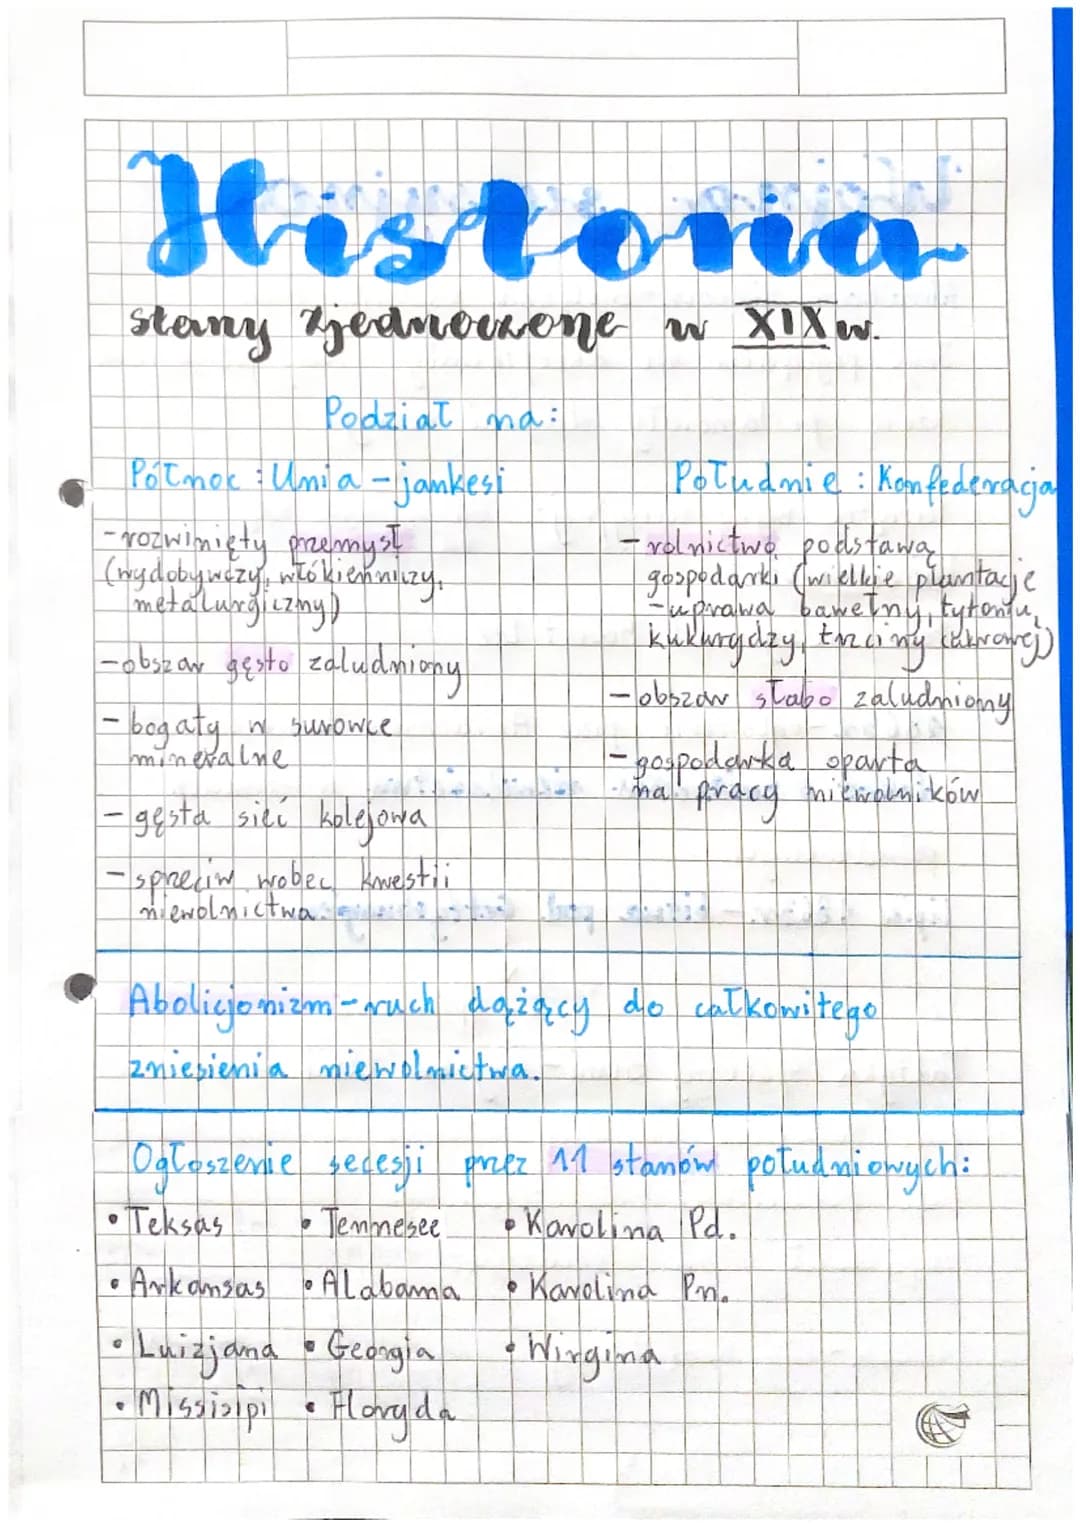 Historia
stany zjednoczone w XIX w.
Podział na:
Północ : Unia – jankesi
– rozwinięty przemysł
(wydobywczy, włókienniczy,
metalurgiczny)
– obszar gęsto zaludniony
– bogaty w surowce
mineralne
– gęsta sieć kolejowa
– sprzeciw wobec kwestii
niewolnictwa.
Południe : Konfederacja
– rolnictwo podstawą
gospodarki (wielkie plantacje
– uprawa bawełny, tytoniu,
kukurydzy, trzciny cukrowej)
– obszar słabo zaludniony
– gospodarka oparta
na pracy niewolników
Abolicjonizm – ruch dążący do całkowitego
zniesienia niewolnictwa.
Ogłoszenie secesji przez 11 stanów południowych:
• Teksas • Tennesee • Karolina Pd.
• Arkansas • Alabama • Karolina Pn.
• Luizjana • Georgia • Wirgina
• Missisipi • Floryda